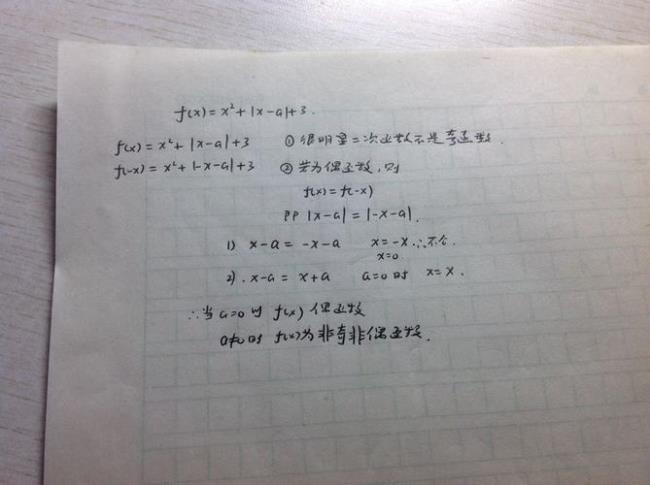 f(x)=x²+|x-a|+3.
f(x)=x²+|x-a|+3 ①很明显二次函数不是奇函数.
f(-x)=x²+|-x-a|+3 ②若为偶函数,则
f(x)=f(-x)
即|x-a|=|-x-a|.
1) x-a=-x-a x=-x.∴不合.
x=0
2). x-a=x+a a=0时 x=x.
∴当a=0时 f(x)偶函数
a≠0时 f(x)为非奇非偶函数.